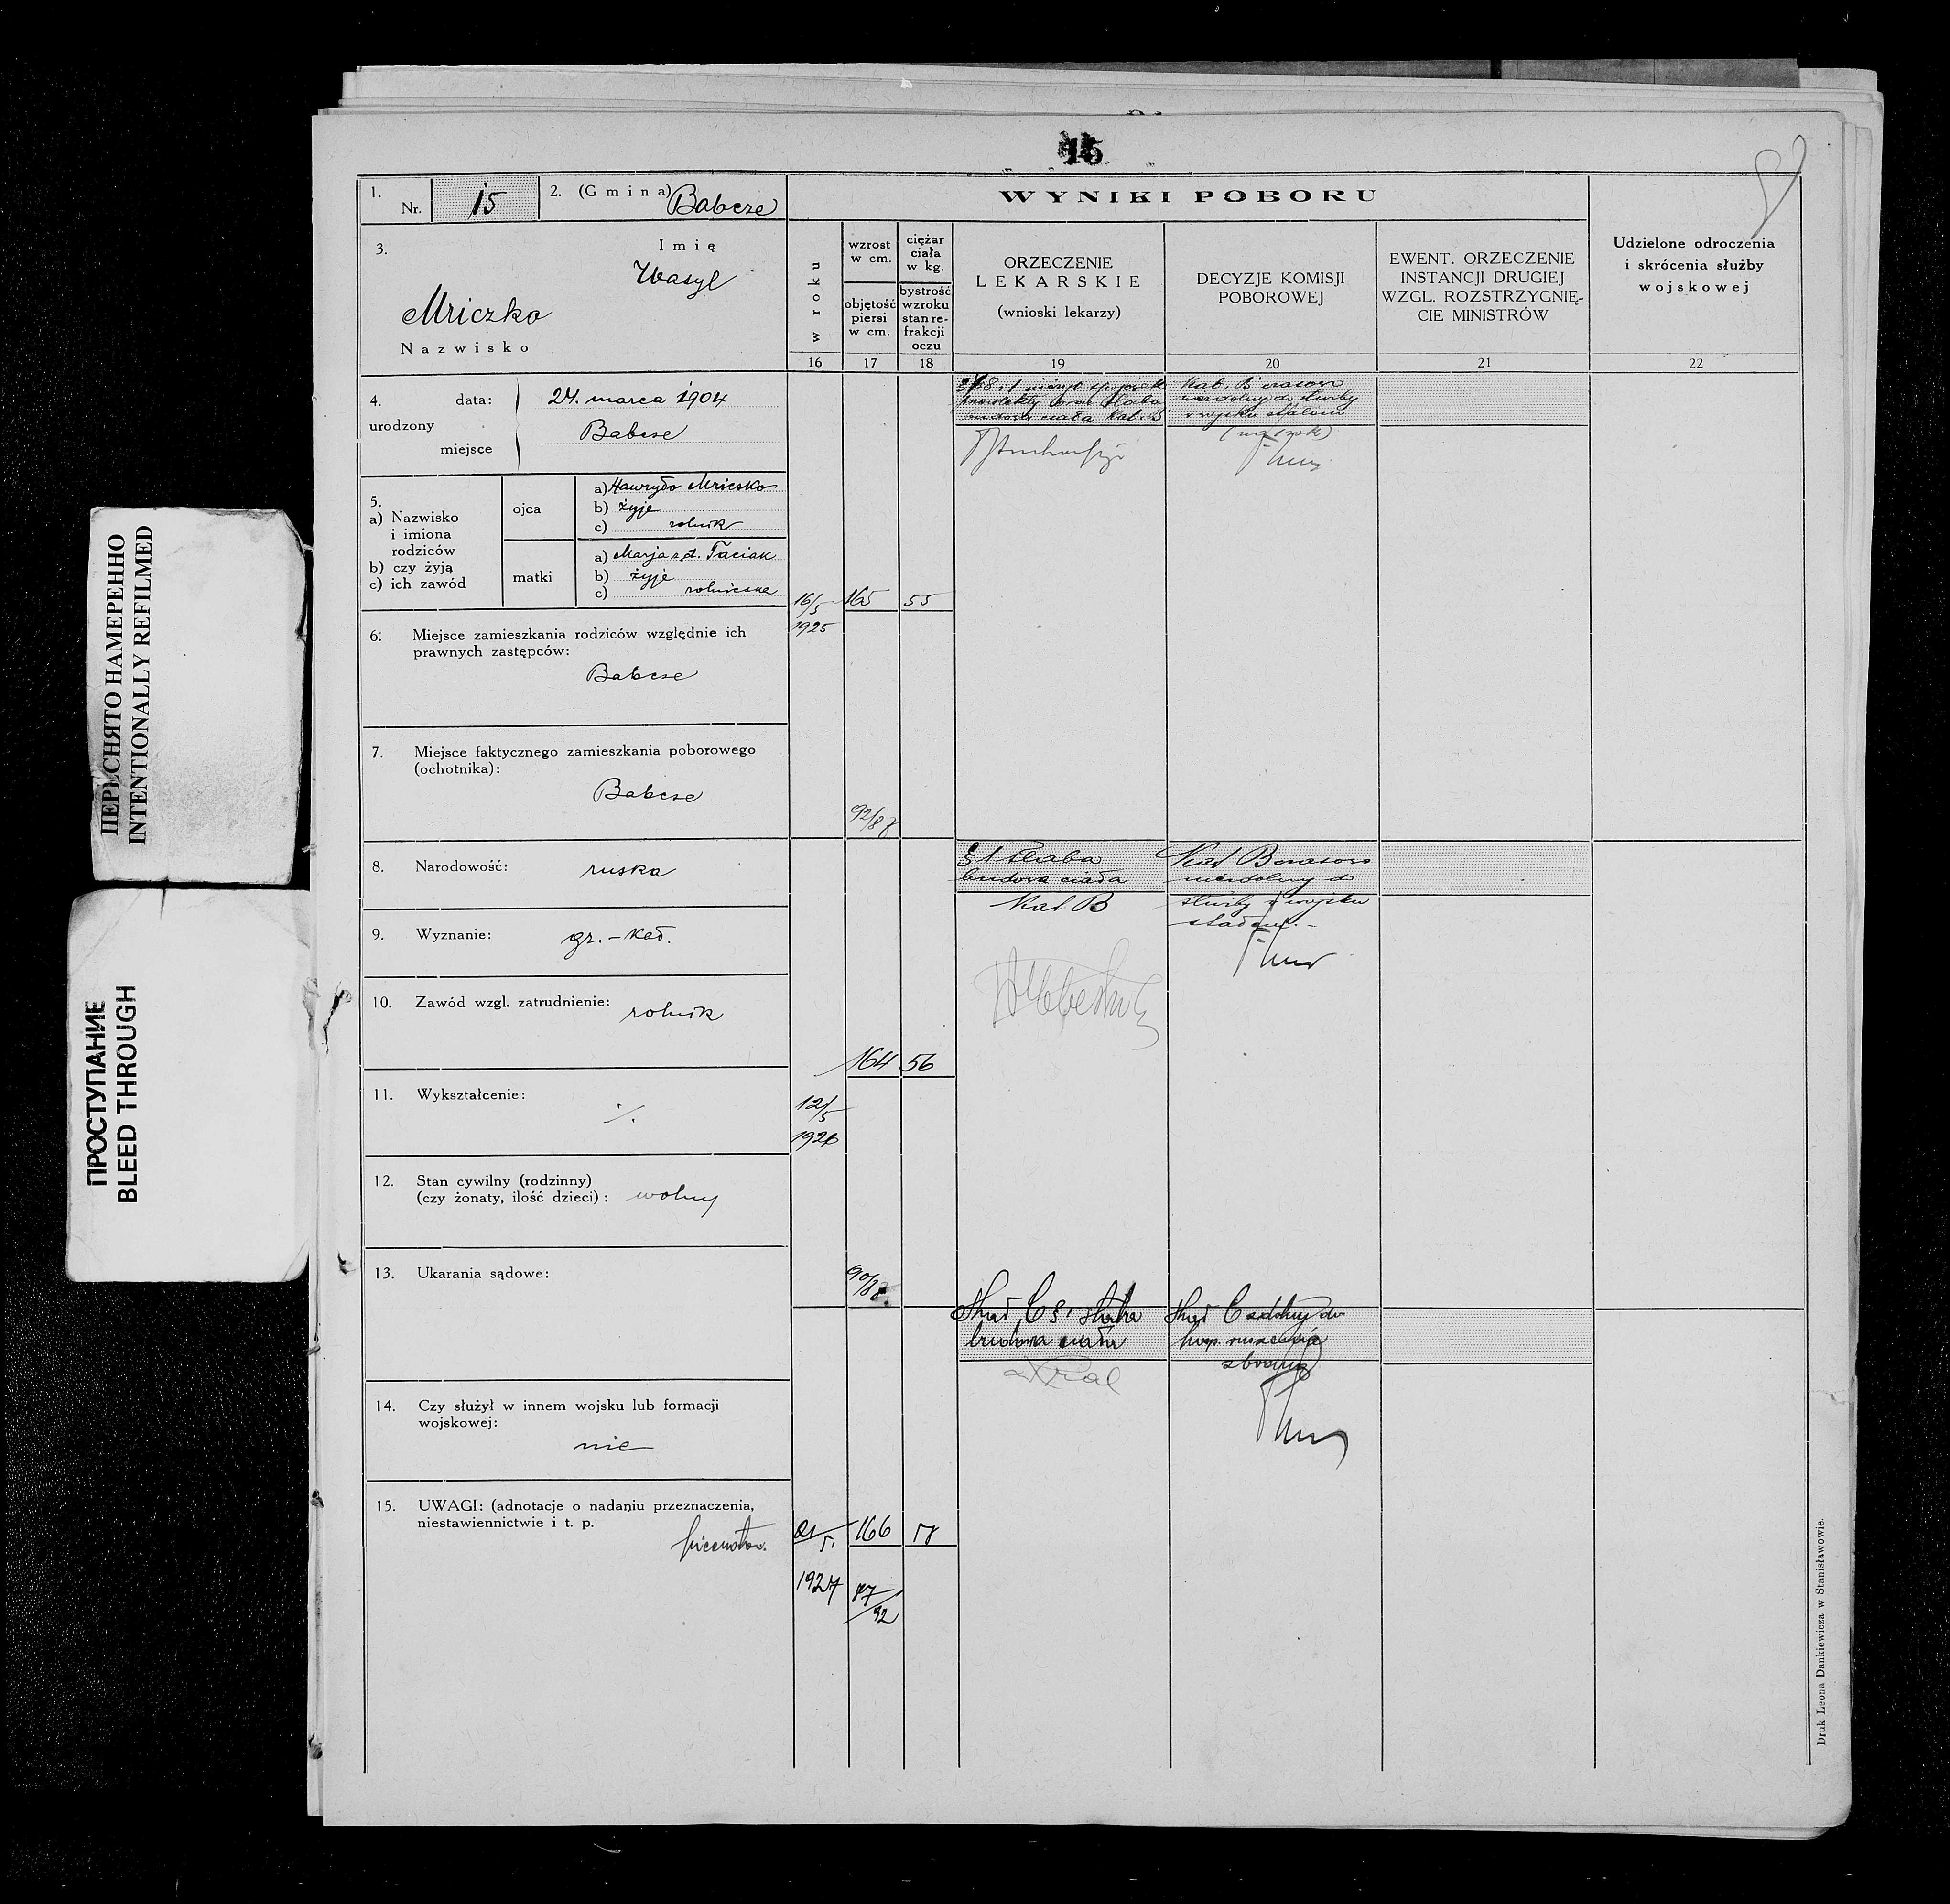 15
1.
Nr. 15
2. (Gmina) Babcze
WYNIKI POBORU
3.
Imię
Wasyl
Mriczko
Nazwisko
w roku
wzrost
w cm.
objętość
piersi
w cm.
ciężar
ciała
w kg.
bystrość
wzroku
stan re-
frakcji
oczu
ORZECZENIE
LEKARSKIE
(wnioski lekarzy)
DECYZJE KOMISJI
POBOROWEJ
EWENT. ORZECZENIE
INSTANCJI DRUGIEJ
WZGL. ROZSTRZYGNIĘ-
CIE MINISTRÓW
Udzielone odroczenia
i skrócenia służby
wojskowej
16 17 18 19 20 21 22
4. data: 24. marca 1904
urodzony
miejsce Babcze
5.
a) Nazwisko
i imiona
rodziców
b) czy żyją
c) ich zawód
ojca
a) Hawryło Mriczko
b) żyje
c) rolnik
matki
a) Marja z d. Taciak
b) żyje
c) rolniczka
6. Miejsce zamieszkania rodziców względnie ich
prawnych zastępców:
Babcze
7. Miejsce faktycznego zamieszkania poborowego
(ochotnika):
Babcze
8. Narodowość: ruska
9. Wyznanie: gr.-kat.
10. Zawód wzgl. zatrudnienie: rolnik
11. Wykształcenie: ./.
12. Stan cywilny (rodzinny)
(czy żonaty, ilość dzieci): wolny
13. Ukarania sądowe:
14. Czy służył w innem wojsku lub formacji
wojskowej:
nie
15. UWAGI: (adnotacje o nadaniu przeznaczenia,
niestawiennictwie i t. p.
16/5 165 55
1925
budowa ciała Kat. B
Kat. B czasowo
niezdolny do służby
w wojsku stałem
(na rok)
164 56
12/5
1926
§ 1 słaba
budowa ciała
Kat B
Kat B czasowo
niezdolny do
służby w wojsku
stałem.-
166
1927 87/92
Kat C § 1 słaba
budowa ciała
Kat C zdolny do
posp. ruszenia
z bronią
Król
Druk Leona Dankiewicza w Stanisławowie.
ПЕРЕСНЯТО НАМЕРЕННО
INTENTIONALLY REFILMED
ПРОСТУПАНИЕ
BLEED THROUGH